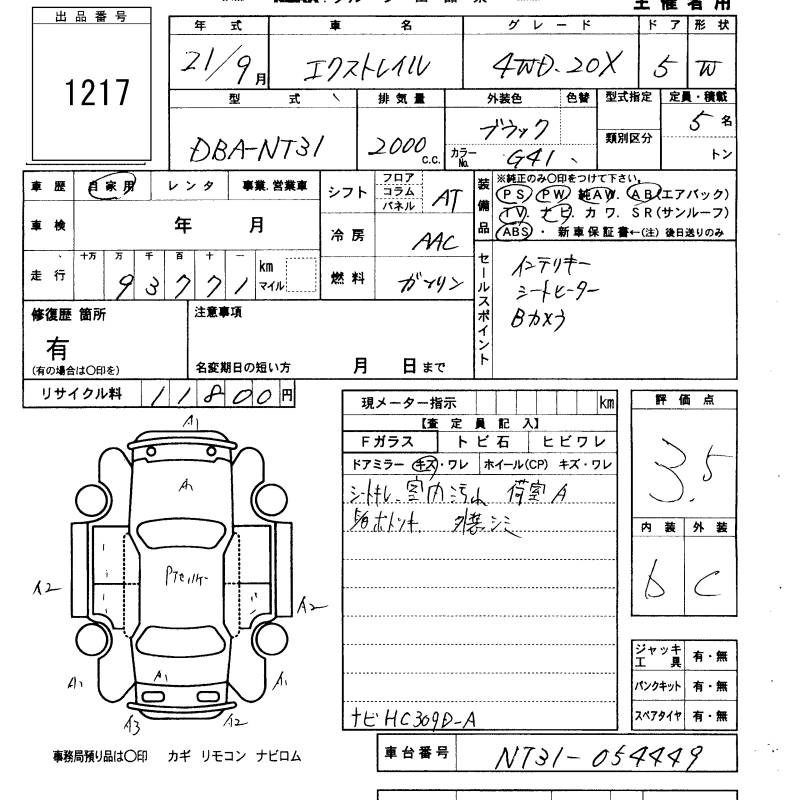 主催者用
出品番号
1217
年式 車名 グレード ドア 形状
21/9月 エクストレイル 4WD.20X 5 W
型式 排気量 外装色 色替 型式指定 定員・積載
DBA-NT31 2000c.c. ブラック 類別区分 5名
カラーNo. G41 トン
車歴 自家用 レンタ 事業.営業車 シフト フロア コラム パネル AT
装備品 ※純正のみ〇印をつけて下さい。
PS. PW. 純AW. AB(エアバック)
TV. ナビ. カワ. SR(サンルーフ)
ABS ・ 新車保証書←(注) 後日送りのみ
車検 年 月 冷房 AAC
走行 十万 万 千 百 十 一 km マイル
93771 燃料 ガソリン
セールスポイント
インテリキー
シートヒーター
Bカメラ
修復歴 箇所 注意事項
有
(有の場合は〇印を) 名変期日の短い方 月 日まで
リサイクル料 11800円
現メーター指示 km
【査定員記入】
Fガラス トビ石 ヒビワレ
ドアミラー キズ・ワレ ホイール(CP) キズ・ワレ
シートキレ 室内汚れ 荷室A
外装シミ
ナビ HC309D-A
評価点
3.5
内装 外装
D C
ジャッキ工具 有・無
パンクキット 有・無
スペアタイヤ 有・無
A1
A1
A2
A2
A1 A1 A1
A3 A2
事務局預り品は〇印 カギ リモコン ナビロム
車台番号 NT31-054449